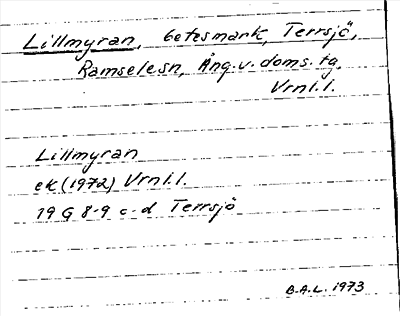 Lillmyran, betesmark, Terrsjö,
Ramsele sn, Ång.v. doms. tg,
Vrnl.l.
Lillmyran
ek (1972) Vrnl.l.
19 G 8-9 c-d Terrsjö
B.A.L. 1973